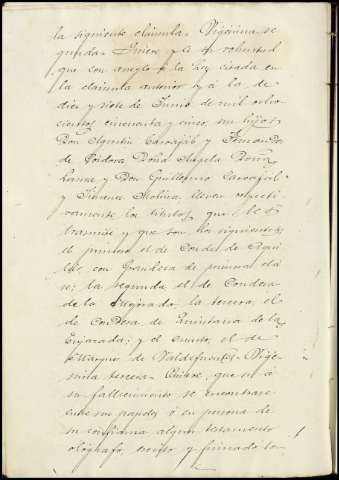 la siguiente cláusula. Vigésima se
gunda. Quiere y es su voluntad
que con arreglo a la ley citada en
la cláusula anterior y á la de
diez y siete de Junio de mil ocho
cientos cincuenta y cinco, sus hijos
Don Agustin Carvajal y
de Córdova Doña Angela Doña
Laura y Don Guillermo Carvajal
y Jimenez Molina lleven respecti
vamente los títulos que les
trasmite y que son los siguientes:
el primero el de Conde de Agui
lar, con Grandeza de primera cla
se; la segunda el de Condesa
de la Mejorada; la tercera, el
de Condesa de Quintana de la
Enjarada; y el cuarto, el de
Marques de Valdefuentes. Vige
sima tercera. Quiere, que si á
su fallecimiento se encontrare
entre sus papeles ó en persona de
su confianza algun testamento
ológrafo, escrito y firmado